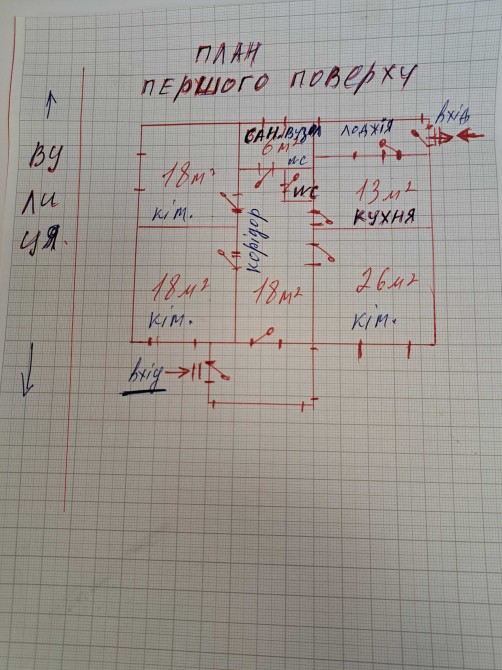 ПЛАН
ПЕРШОГО ПОВЕРХУ
ВУ
ЛИ
ЦЯ.
САН. ВУЗОЛ
6 м²
ЛОДЖІЯ
вхід
wc
18 м²
кім.
wc
13 м²
КУХНЯ
коридор
18 м²
кім.
18 м²
26 м²
кім.
вхід